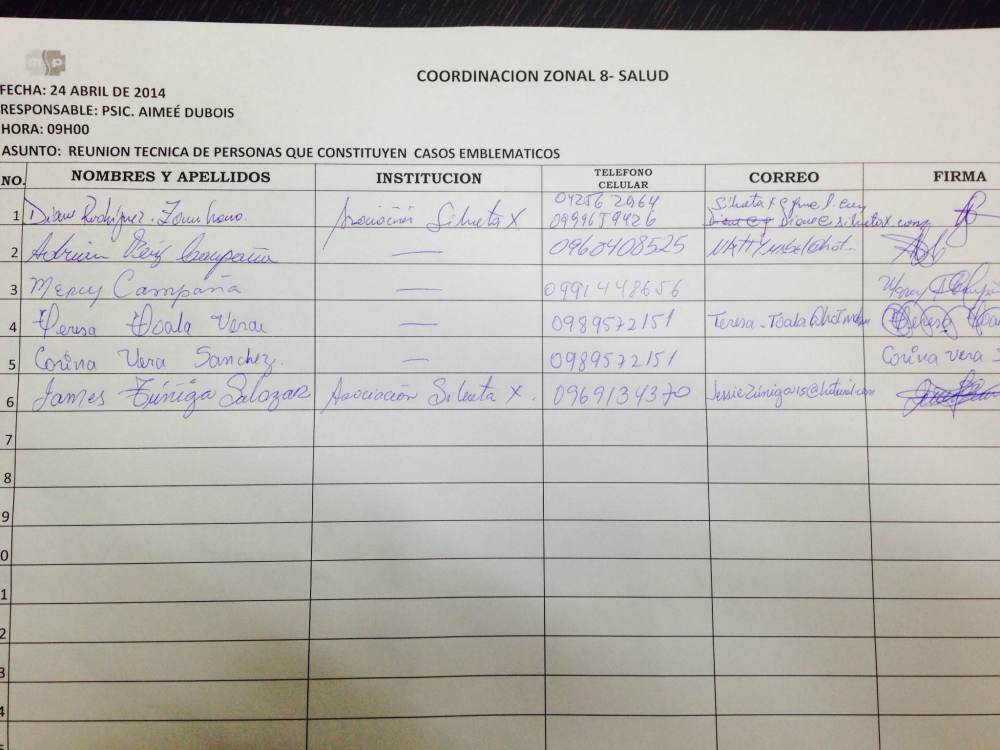 msp
COORDINACION ZONAL 8- SALUD
FECHA: 24 ABRIL DE 2014
RESPONSABLE: PSIC. AIMEÉ DUBOIS
HORA: 09H00
ASUNTO: REUNION TECNICA DE PERSONAS QUE CONSTITUYEN CASOS EMBLEMATICOS
NO. NOMBRES Y APELLIDOS INSTITUCION TELEFONO CELULAR CORREO FIRMA
1 Diane Rodríguez Zambrano Asociación Silueta X 042562964 0999659426
2 Adrian 0960408525
3 Mercy Campaña 0991448656 Mercy
4 Teresa Toala Vera 0989572151 Teresa Teresa
5 Corina Vera Sanchez. 0989572151 Corina Vera
6 James Zúñiga Salazar Asociación Silueta X. 0969134370
7
8
9
0
1
2
3
4